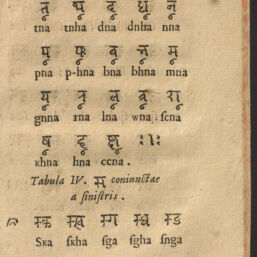 त्न थ्न द्न ध्न न्न
tna tnha dna dnha nna
प्न फ्न ब्न भ्न म्न
pna p-hna bna bhna mna
य्न र्न ल्न व्न
gnna rna lna wna ſcna
ष्न ह्न क्ष्न
xhna hna ccna.
Tabula IV. स coniunctae
a ſiniſtris.
स्क स्ख स्ग स्घ स्ङ
Sxa ſkha ſga ſgha ſnga